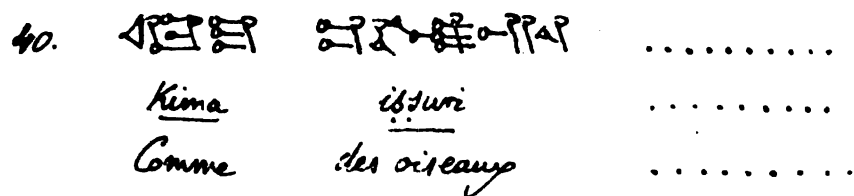 40. ..........
Kima iṣṣuri ..........
Comme des oiseaux ..........